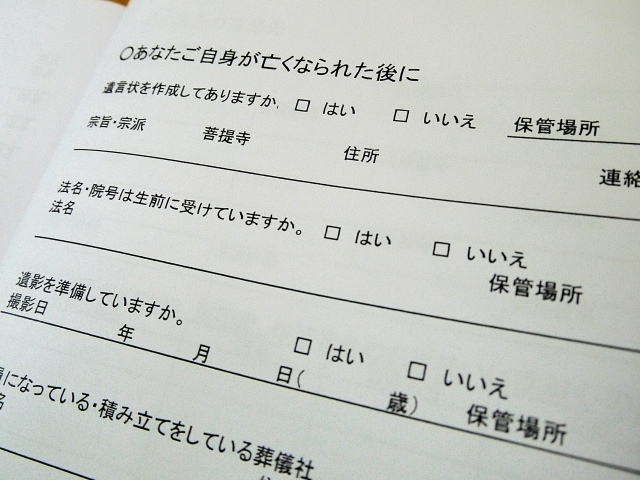 ○あなたご自身が亡くなられた後に
遺言状を作成してありますか. □ はい □ いいえ 保管場所
宗旨・宗派 菩提寺 住所 連絡
法名・院号は生前に受けていますか。 □ はい □ いいえ
法名 保管場所
遺影を準備していますか。 □ はい □ いいえ
撮影日 年 月 日( 歳) 保管場所
になっている・積み立てをしている葬儀社
名